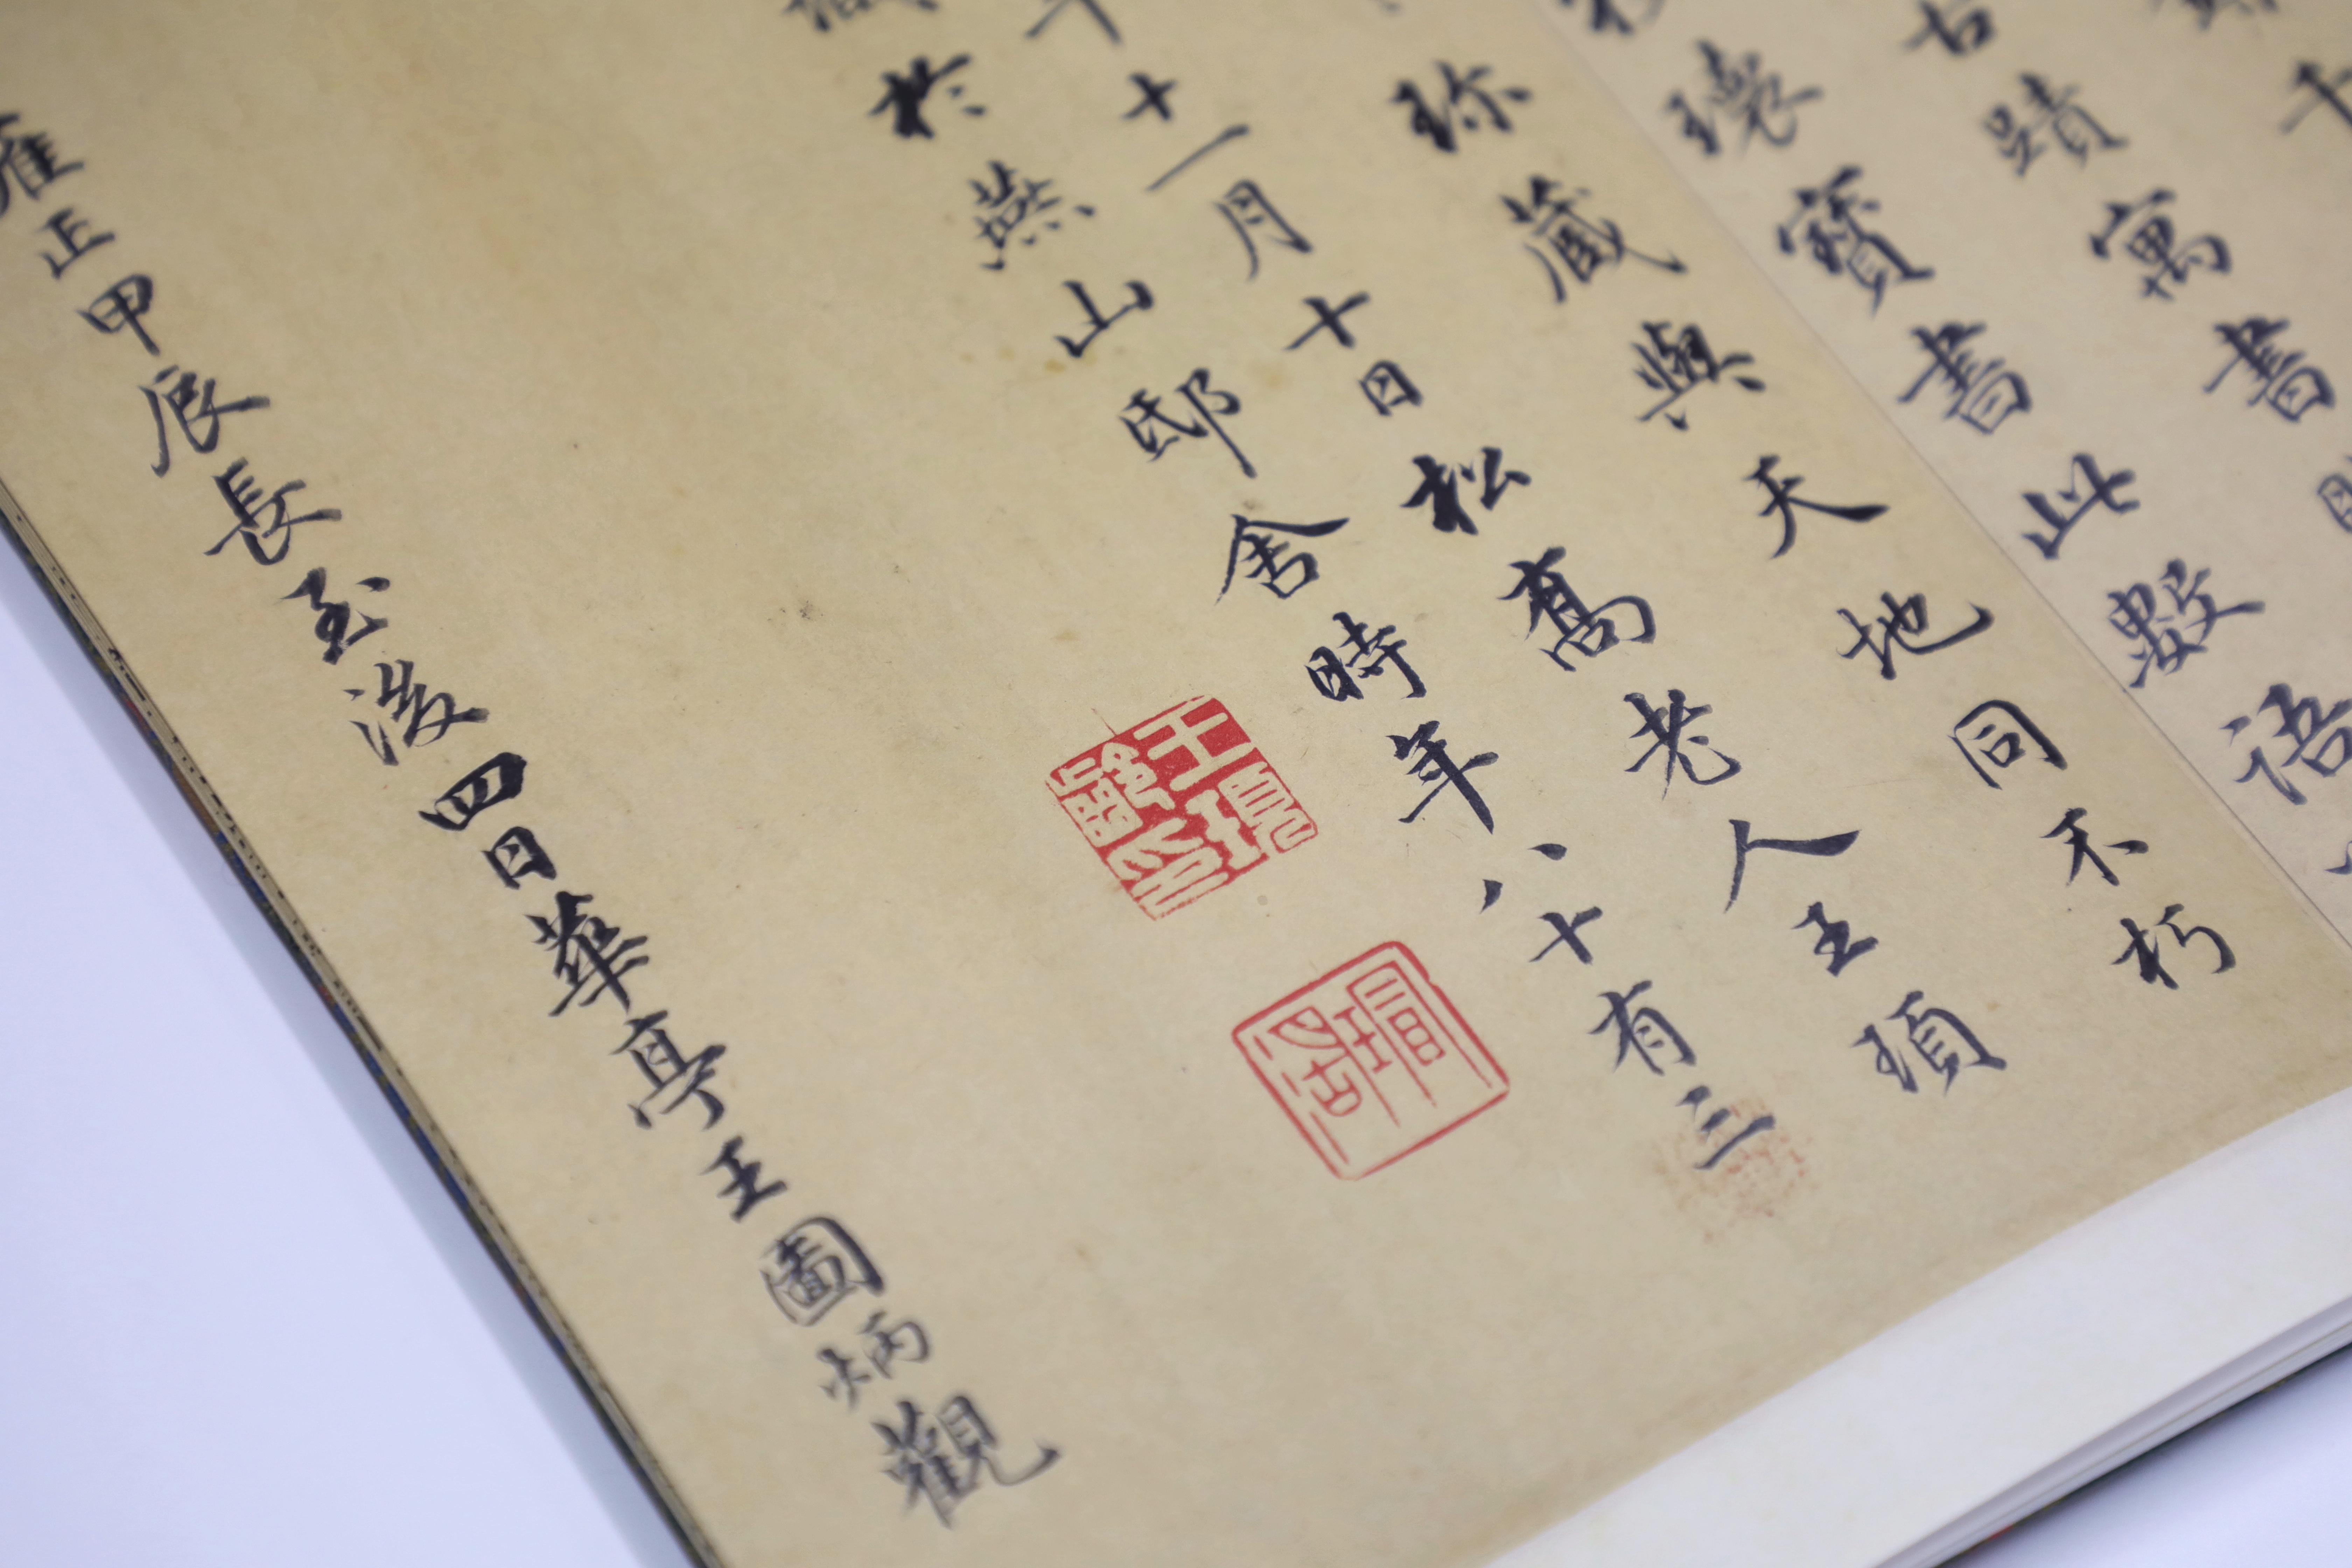 古蹟寓書
瓌寶書此數語
珎藏與天地同不朽
年十一月十日松喬老人王頊
識於燕山邸舍時年八十有三
王頊齡印
瑁湖
雍正甲辰長至後四日華亭王圖炳觀